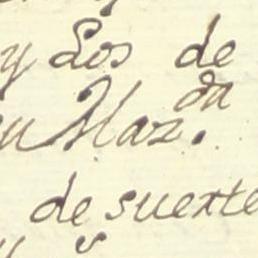 y Los de
Maz.da
de suerte